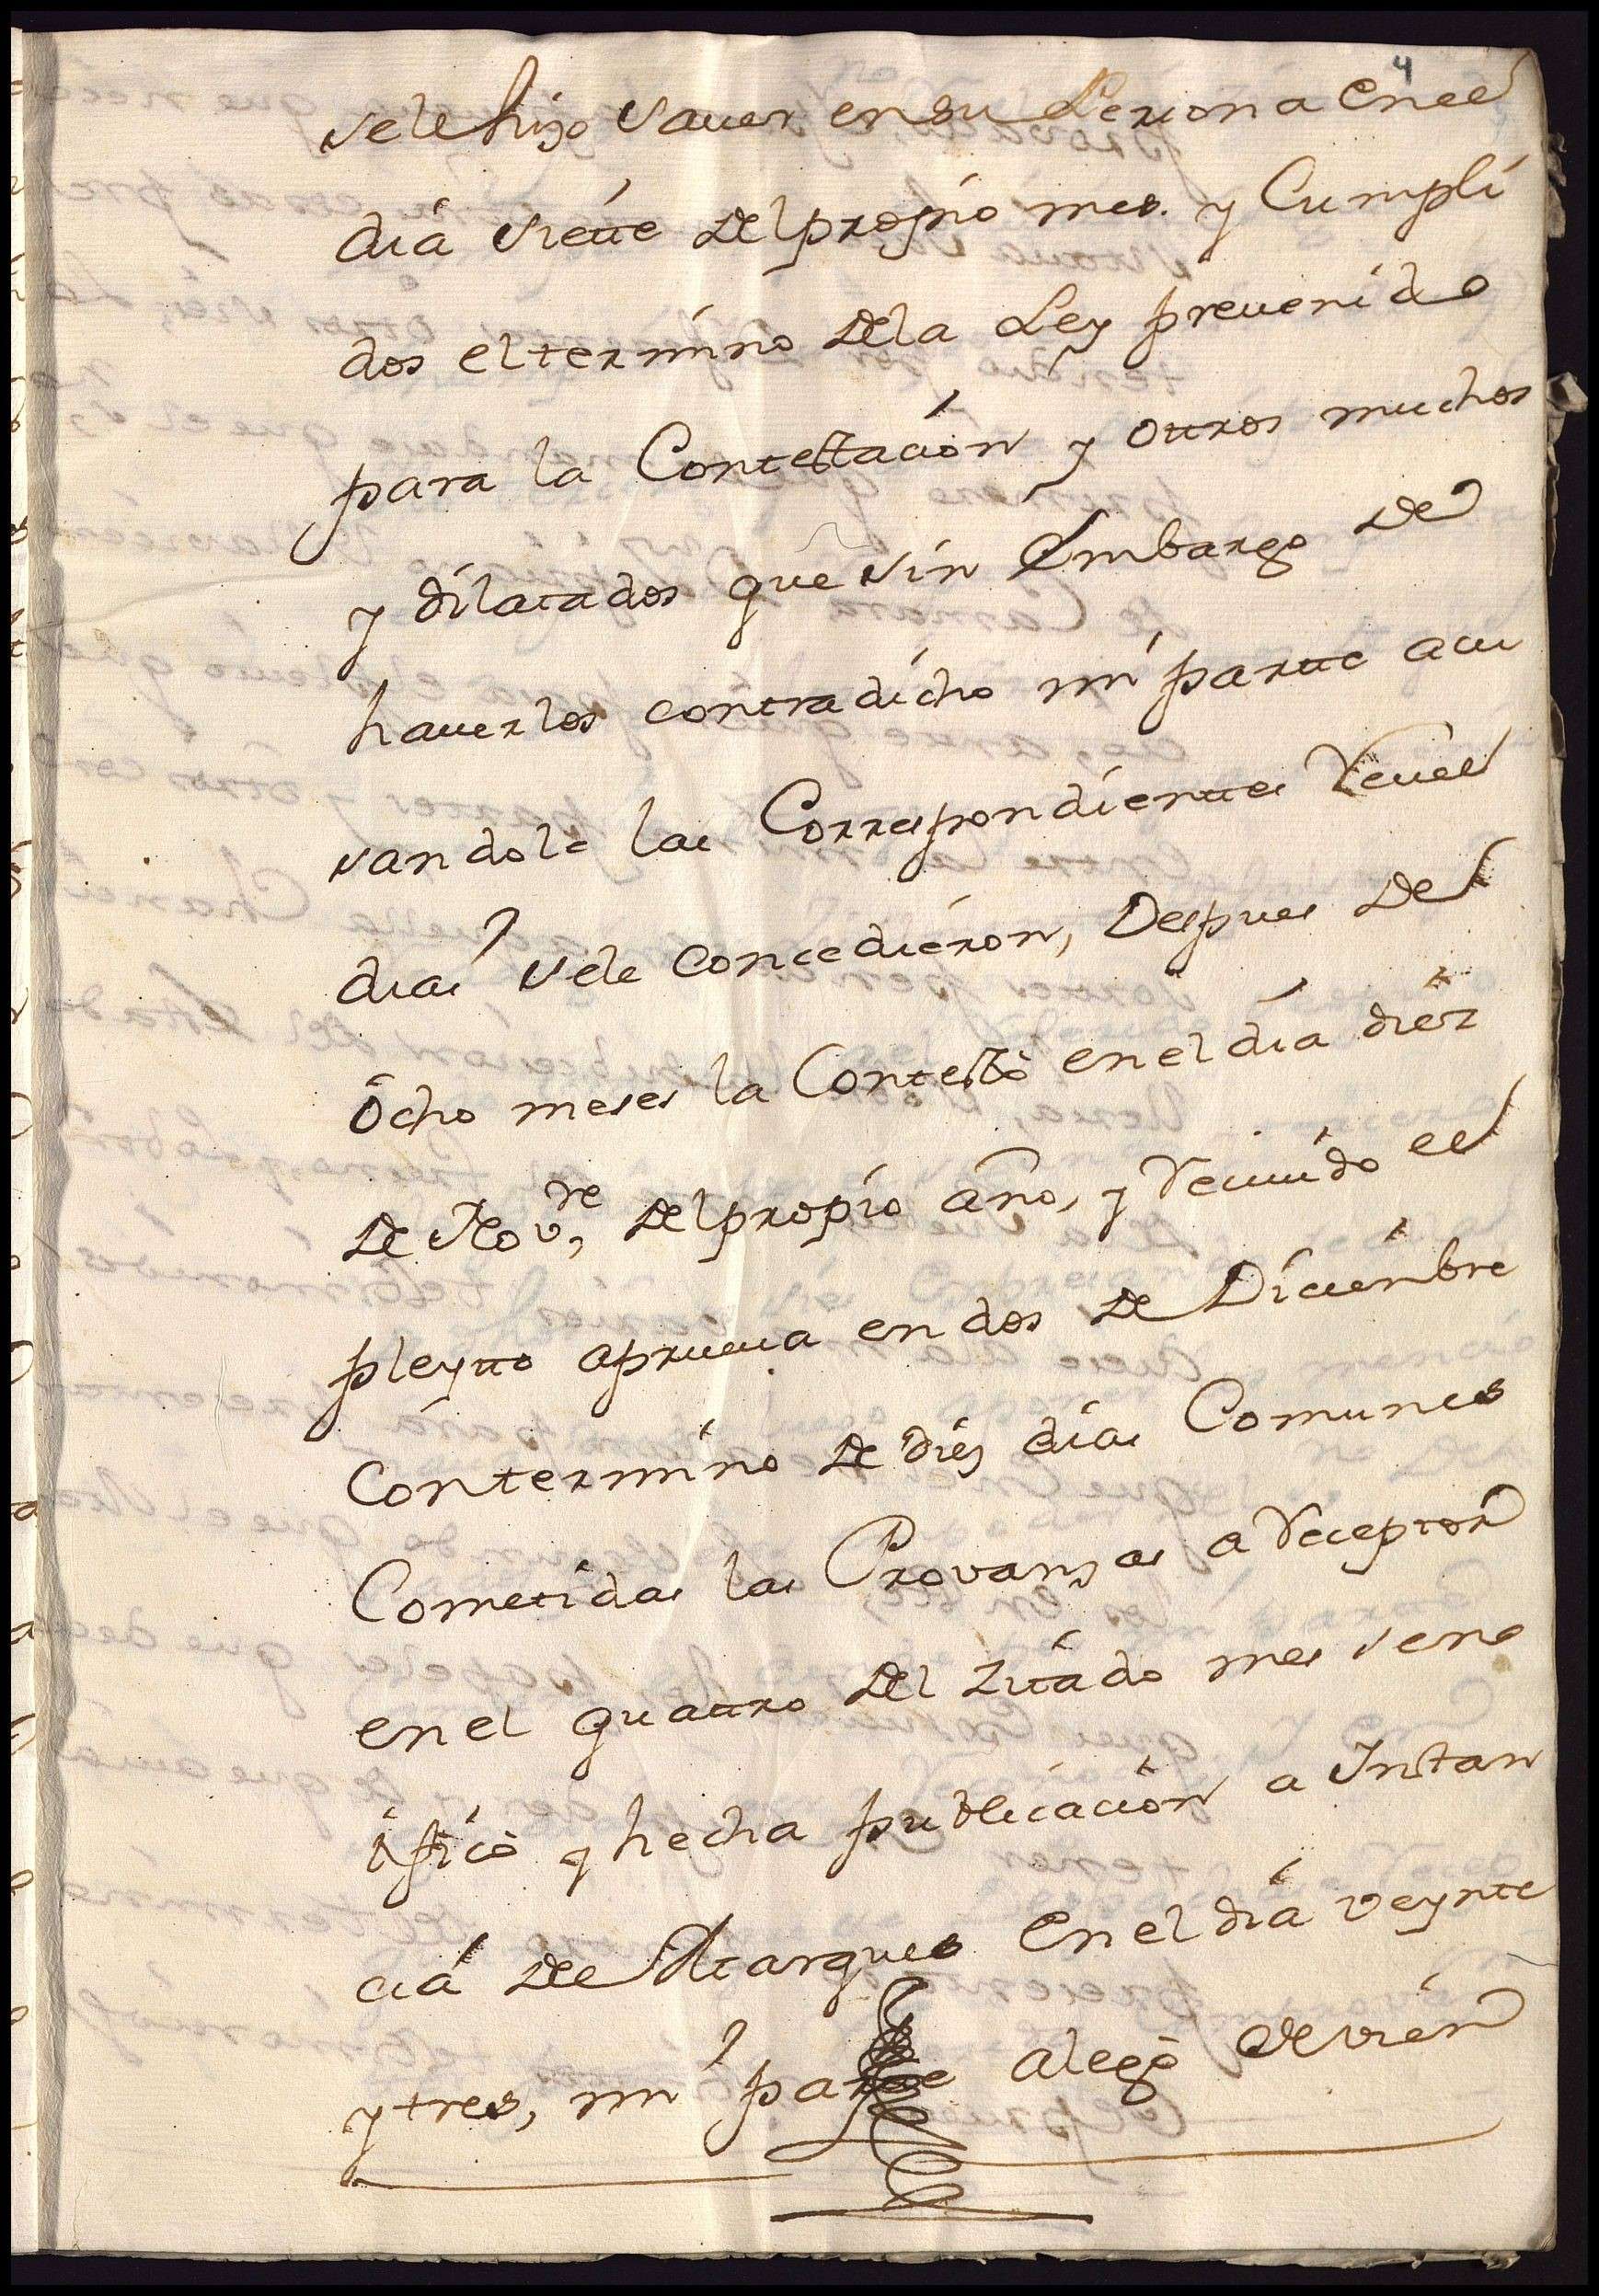 4
sele hizo saver en su Persona en el
dia siette del propio mes. y Cumpli
dos el termino de la Ley prevenido
para la Contestacion y ottros muchos
y dilatados que sin Embargo de
haverlos contradicho mi partte acu
sandole las Correspondienttes Revel
dias sele concedieron, Despues de
ôcho meses la Contestò en el dia diez
de Nov.re del propio año, y Recivido el
pleytto aprueva en dos de Diciembre
Contermino de diez dias Comunes
Cometidas las Provanzas a Receptor
en el quattro del zitado mes seno
tificò y hecha publicacion a Instan
cia de Marques En el dia veynte
y tres, mi parte alegò de vien